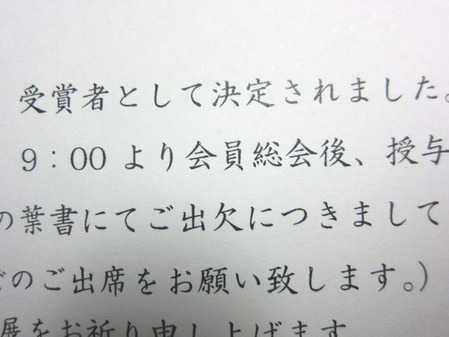 受賞者として決定されました。
9：00 より会員総会後、授与
の葉書にてご出欠につきまして
どのご出席をお願い致します。）
展をお祈り申し上げます